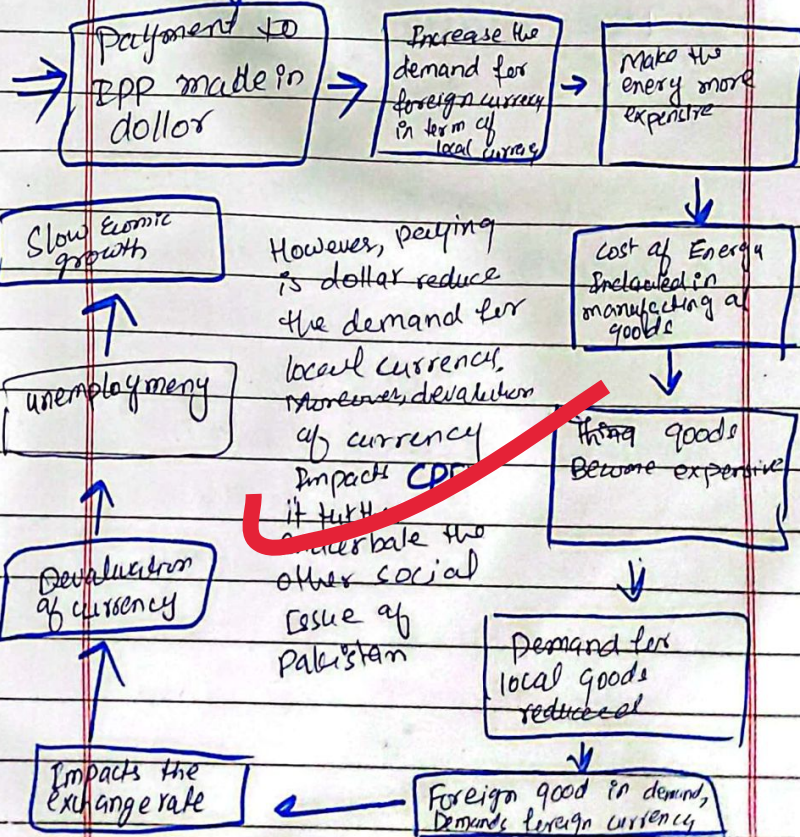 Payment to
IPP made in
dollor
Increase the
demand for
foreign currency
in term of
local currency
Make the
enery more
expensive
Cost of Energy
Included in
manufacting of
goods
goods
Become expensive
Demand for
local goods
reduced
Foreign good in demand,
Demands foreign currency
Impacts the
exchange rate
Devaluation
of currency
unemploymeny
Slow
growth
However, paying
is dollar reduce
the demand for
local currency.
Moreover, devalution
of currency
Impacts
it
the
other social
Issue of
Pakistan